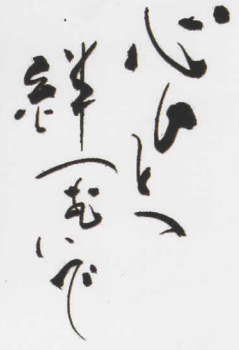 心ひとつ
絆つむいで